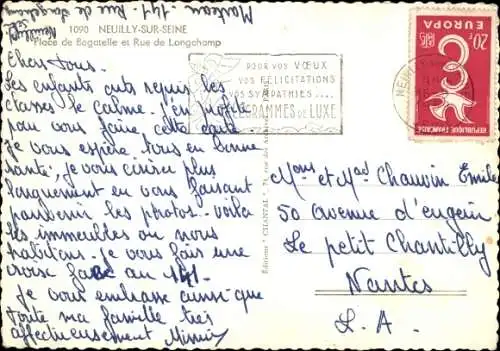 Marteau - 141 - Rue de Longchamp
Neuilly s/Seine
1090 NEUILLY-SUR-SEINE
Place de Bagatelle et Rue de Longchamp
Chers tous.
Les enfants onts repris les
classes le calme. j'en profite
pour vous faire cette carte
je vous espère tous en bonne
santé, je vous écrirer plus
longuement en vous faisant
parvenir les photos. voila
les immeubles ou nous
habitons. je vous fais une
croix face au 141.
je vous embrasse ainsi que
toute ma famille très
affectueusement Mimi
POUR VOS VŒUX
VOS FÉLICITATIONS
VOS SYMPATHIES ....
TÉLÉGRAMMES DE LUXE
NEUILLY
Editions "CHANTAL"
20f EUROPA
REPUBLIQUE FRANÇAISE
POSTES
Mons et Mad Chauvin Emile
50 avenue d'eugein
Le petit Chantilly
Nantes
L. A.